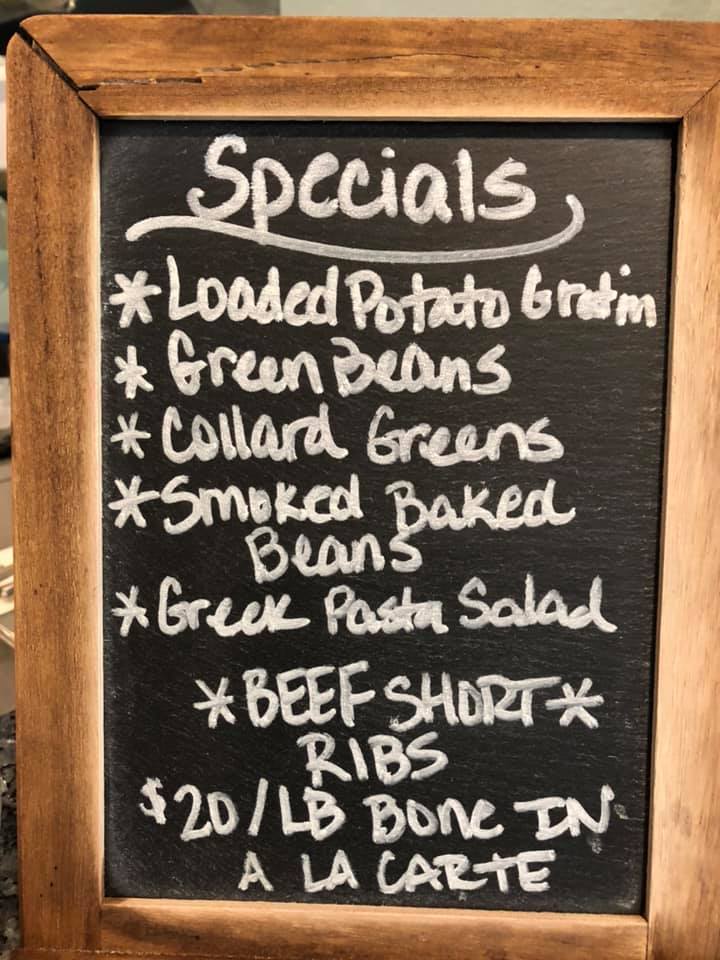 Specials
* Loaded Potato Gratin
* Green Beans
* Collard Greens
* Smoked Baked
Beans
* Greek Pasta Salad
* BEEF SHORT *
RIBS
$20/LB Bone IN
A LA CARTE